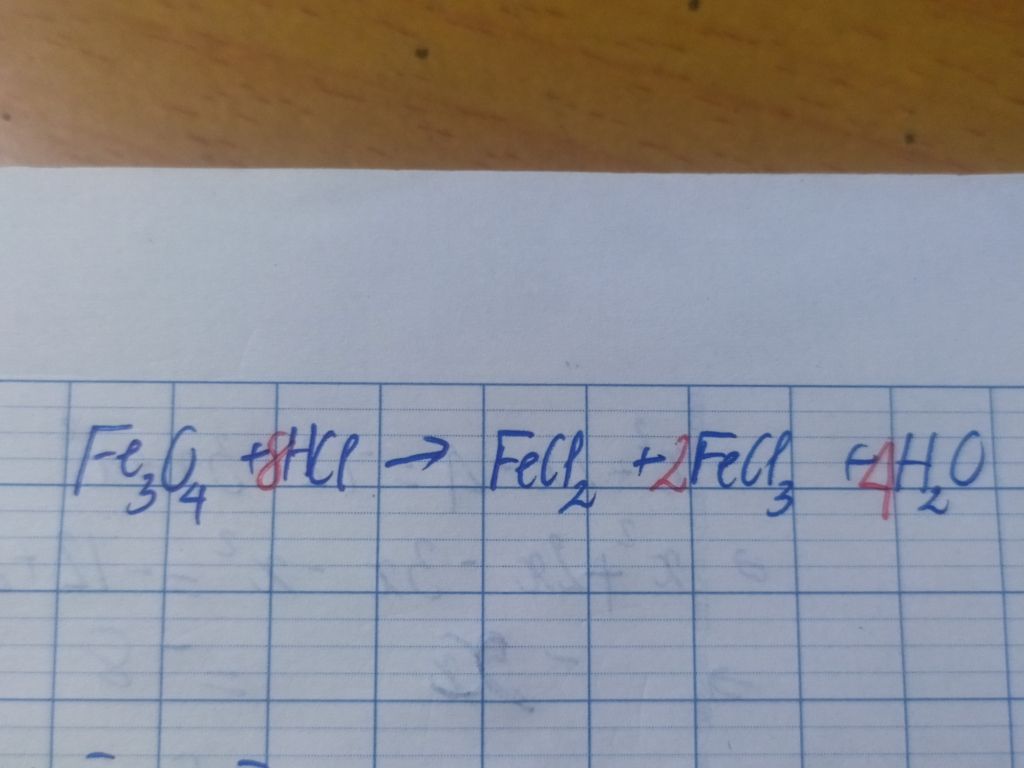 Fe₃O₄ + 8HCl → FeCl₂ + 2FeCl₃ + 4H₂O